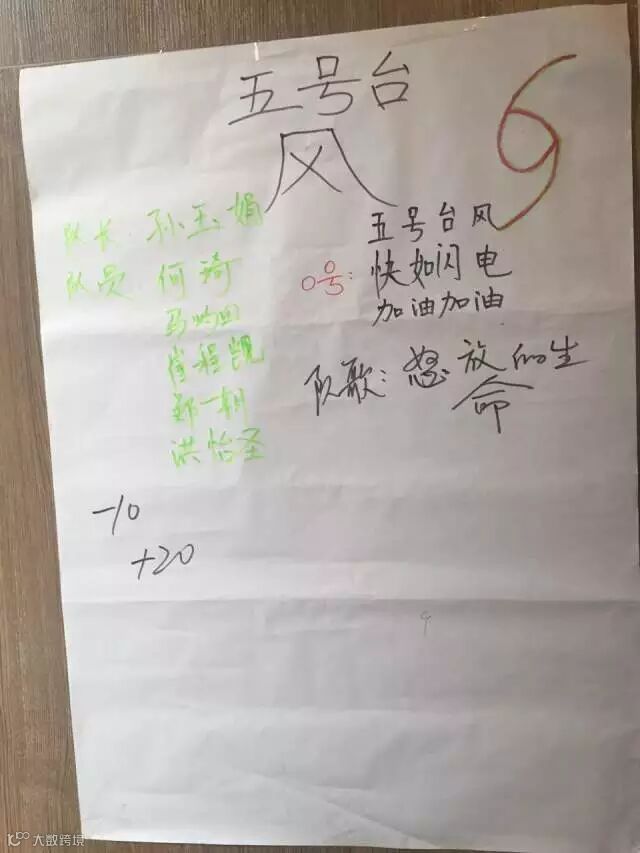 五号台
风
队长 孙玉娟
队员 何琦
崔程凯
郑一朝
洪怡圣
五号台风
口号: 快如闪电
加油加油
队歌: 怒放的生
命
-10
+20
大数跨境